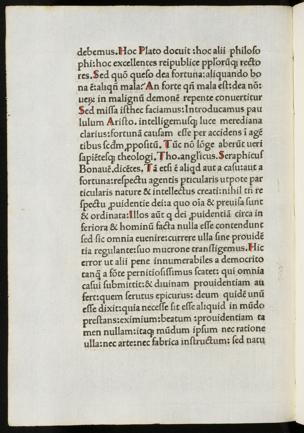 debemus. Hoc Plato docuit: hoc alii philoso
phi: hoc excellentes reipublice ppłorūq; recto
res. Sed quō queso dea fortuna: aliquando bo
na ē: aliqñ mala: An forte qñ mala est: dea nō:
ueȝ: in malignū demonē repente conuertitur
Sed missa isthec faciamus: Introducamus pau
lulum Aristo. intelligemusq; luce merediana
clarius: fortunā causam esse per accidens ī agē
tibus scdm, ppositū. Tūc nō lōge aberūt ueri
sapiētesq; theologi, Tho. anglicus. Seraphicus
Bonauē, dicētes, Tā etsi ē aliqd aut a casu aut a
fortuna: respectu agentis pticularis utpote par
ticularis nature & intellectus creati: nihil tñ re
spectu ,puidentie dei: a quo oīa & preuisa sunt
& ordinata: Illos aūt q dei ,puidentiā circa in
feriora & hominū facta nulla esse contendunt
sed sic omnia euenire: currere ulla sine prouidē
tia regulante: suo mucrone transfligemus. Hic
error ut alii pene innumerabiles a democrito
tanq̄ a fōte pernitiosissimus scatet: qui omnia
casui submittit: & diuinam prouidentiam au
fert: quem secutus epicurus: deum quidē unū
esse dixit: quia necesse sit esse aliquid in mūdo
prestans: eximium: beatum: prouidentiam ta
men nullam: itaq; mūdum ipsum nec ratione
ulla: nec arte: nec fabrica instructum: sed natu